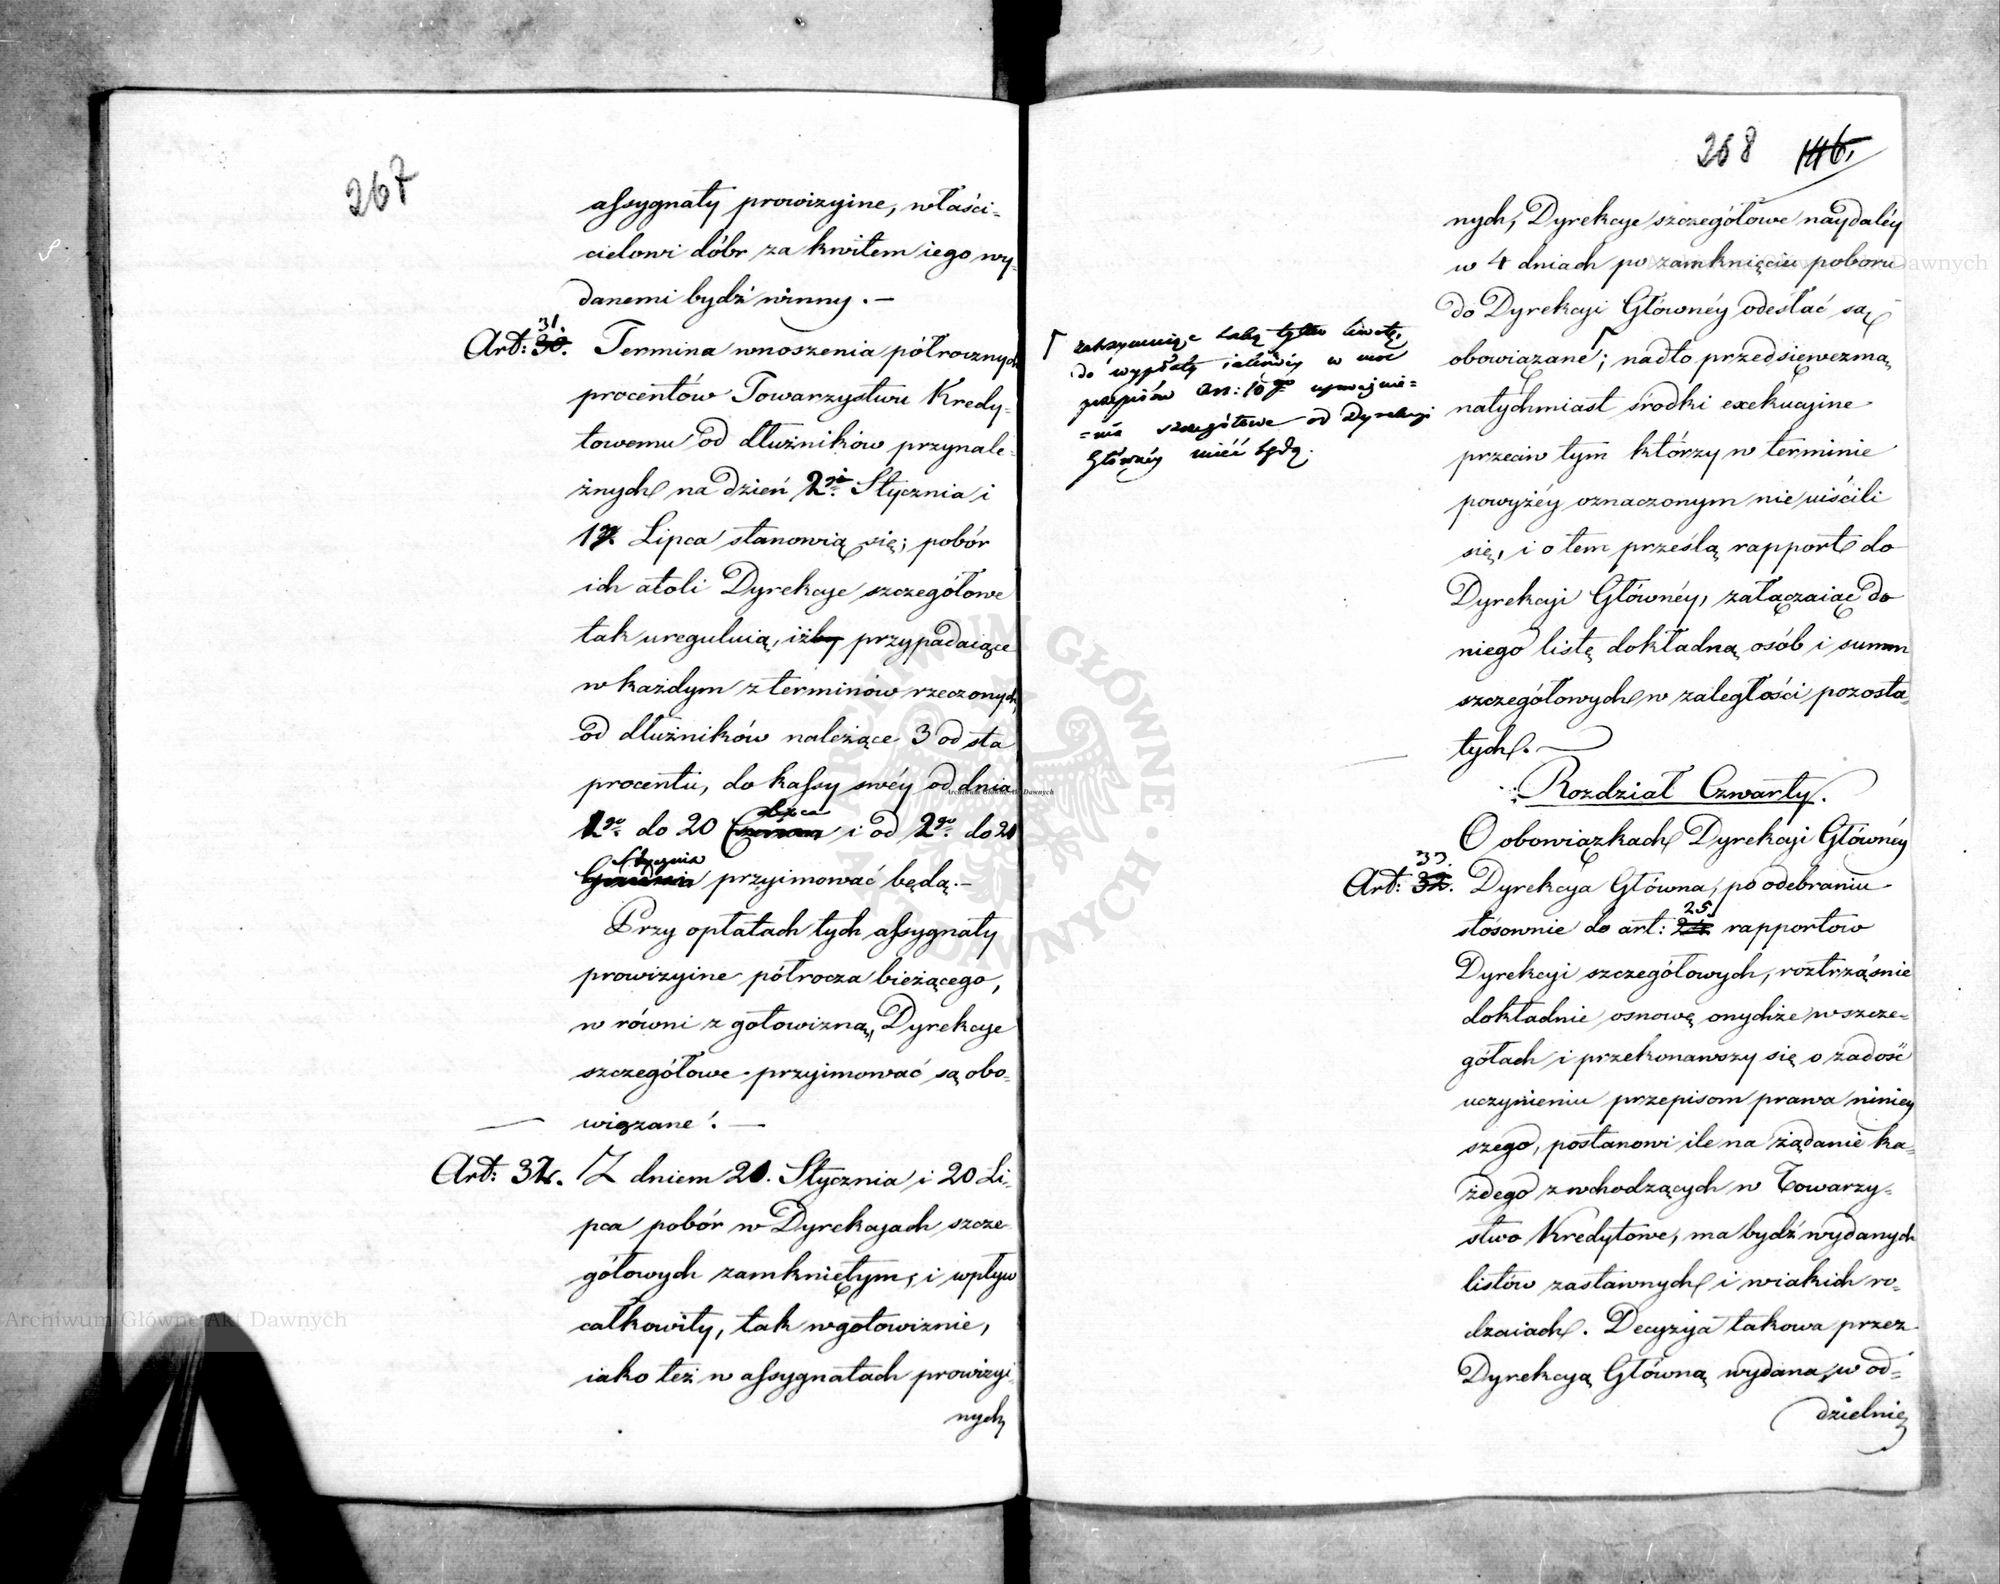 267
assygnaty prowizyine, właści=
cielowi dóbr za kwitem iego wy=
danemi bydź winny. —
31.
Art: 30. Termina wnoszenia półrocznych
procentów Towarzystwu Kredy=
towemu od dłużników przynale=
żnych na dzień 2go Stycznia i
1go Lipca stanowią się; pobór
ich atoli Dyrekcye szczegółowe
tak uregulują, iżby przypadaiące
w każdym z terminów rzeczonych
od dłużników należące 3 od sta
procentu, do kassy swéy od dnia
Lipca
1go do 20 Czerwca i od 2go do 20
Stycznia
Grudnia przyimować będą. —
Przy opłatach tych assygnaty
prowizyine półrocza bieżącego,
w równi z gotowizną, Dyrekcye
szczegółowe przyimować są obo=
wiązane. —
Art: 32. Z dniem 20. Stycznia i 20 Li=
pca pobór w Dyrekcyach szcze=
gółowych zamkniętym, i wpływ
całkowity, tak w gotowiznie,
iako też w assygnatach prowizyi=
nych
268 146.
nych, Dyrekcye szczegółowe naydaléy
w 4 dniach po zamknięciu poboru
do Dyrekcyi Głównéy odesłać są
obowiązane; nadto przedsiewezmą
natychmiast środki exekucyine
przeciw tym którzy w terminie
powyżéy oznaczonym nie uiścili
się, i o tem prześlą rapport do
Dyrekcyi Głównéy, załączaiąc do
niego listę dokładną osób i summ
szczegółowych w zaległości pozosta=
łych. —
zatrzymuiąc taką tylko kwotę,
do wypłaty iakiéy w moc
przepisów art: 10go upoważnie=
=nia szczegółowe od Dyrekcyi
Głównéy mieć będą.
Rozdział Czwarty.
O obowiązkach Dyrekcyi Głównéy
33.
Art: 32. Dyrekcya Główna, po odebraniu
25.
stósownie do art: 24 rapportow
Dyrekcyi szczegółowych, roztrząśnie
dokładnie osnowę onychże w szcze=
gółach i przekonawszy się o zadość
uczynieniu przepisom prawa niniey
szego, postanowi ile na żądanie ka=
żdego z wchodzących w Towarzy=
stwo Kredytowe, ma bydź wydanych
listów zastawnych i w iakich ro=
dzaiach. Decyzya takowa przez
Dyrekcyą Główną wydana, w od=
dzielnie
Archiwum Główne Akt Dawnych